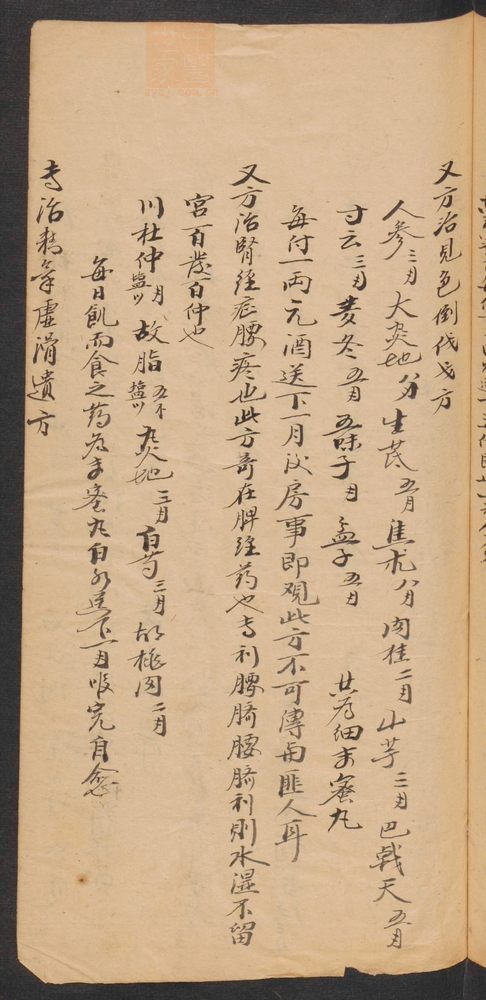 又方治見色倒伐戈方
人參三月 大炙地八分 生芪五月 焦术八月 肉桂二月 山芋三月 巴戟天五月
寸云三月 麦冬五月 五味子月 孟子五月 共為細末蜜丸
每付一两元酒送下一月後房事即观此方不可傳與匪人耳
又方治腎經症腰疼也此方奇在脾经药也专利腰臍腰臍利則水湿不留
宮百歲百仲也
川杜仲盐 月 故脂盐 五 炙地三月 白芍三月 胡桃肉二月
每日飢而食之药為末蜜丸白水送下一月服完自愈
专治精氣虚滑遺方